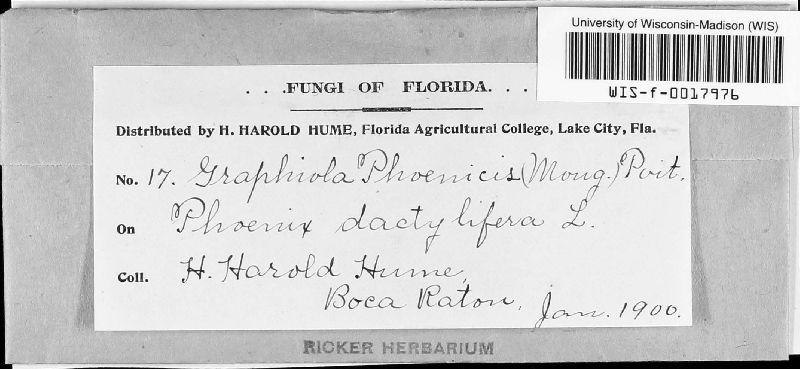 University of Wisconsin-Madison (WIS)
WIS-f-0017976
. . .FUNGI OF FLORIDA. . .
Distributed by H. HAROLD HUME, Florida Agricultural College, Lake City, Fla.
No. 17. Graphiola Phoenicis (Moug.) Poit.
On Phoenix dactylifera L.
Coll. H. Harold Hume,
Boca Raton, Jan. 1900.
RICKER HERBARIUM